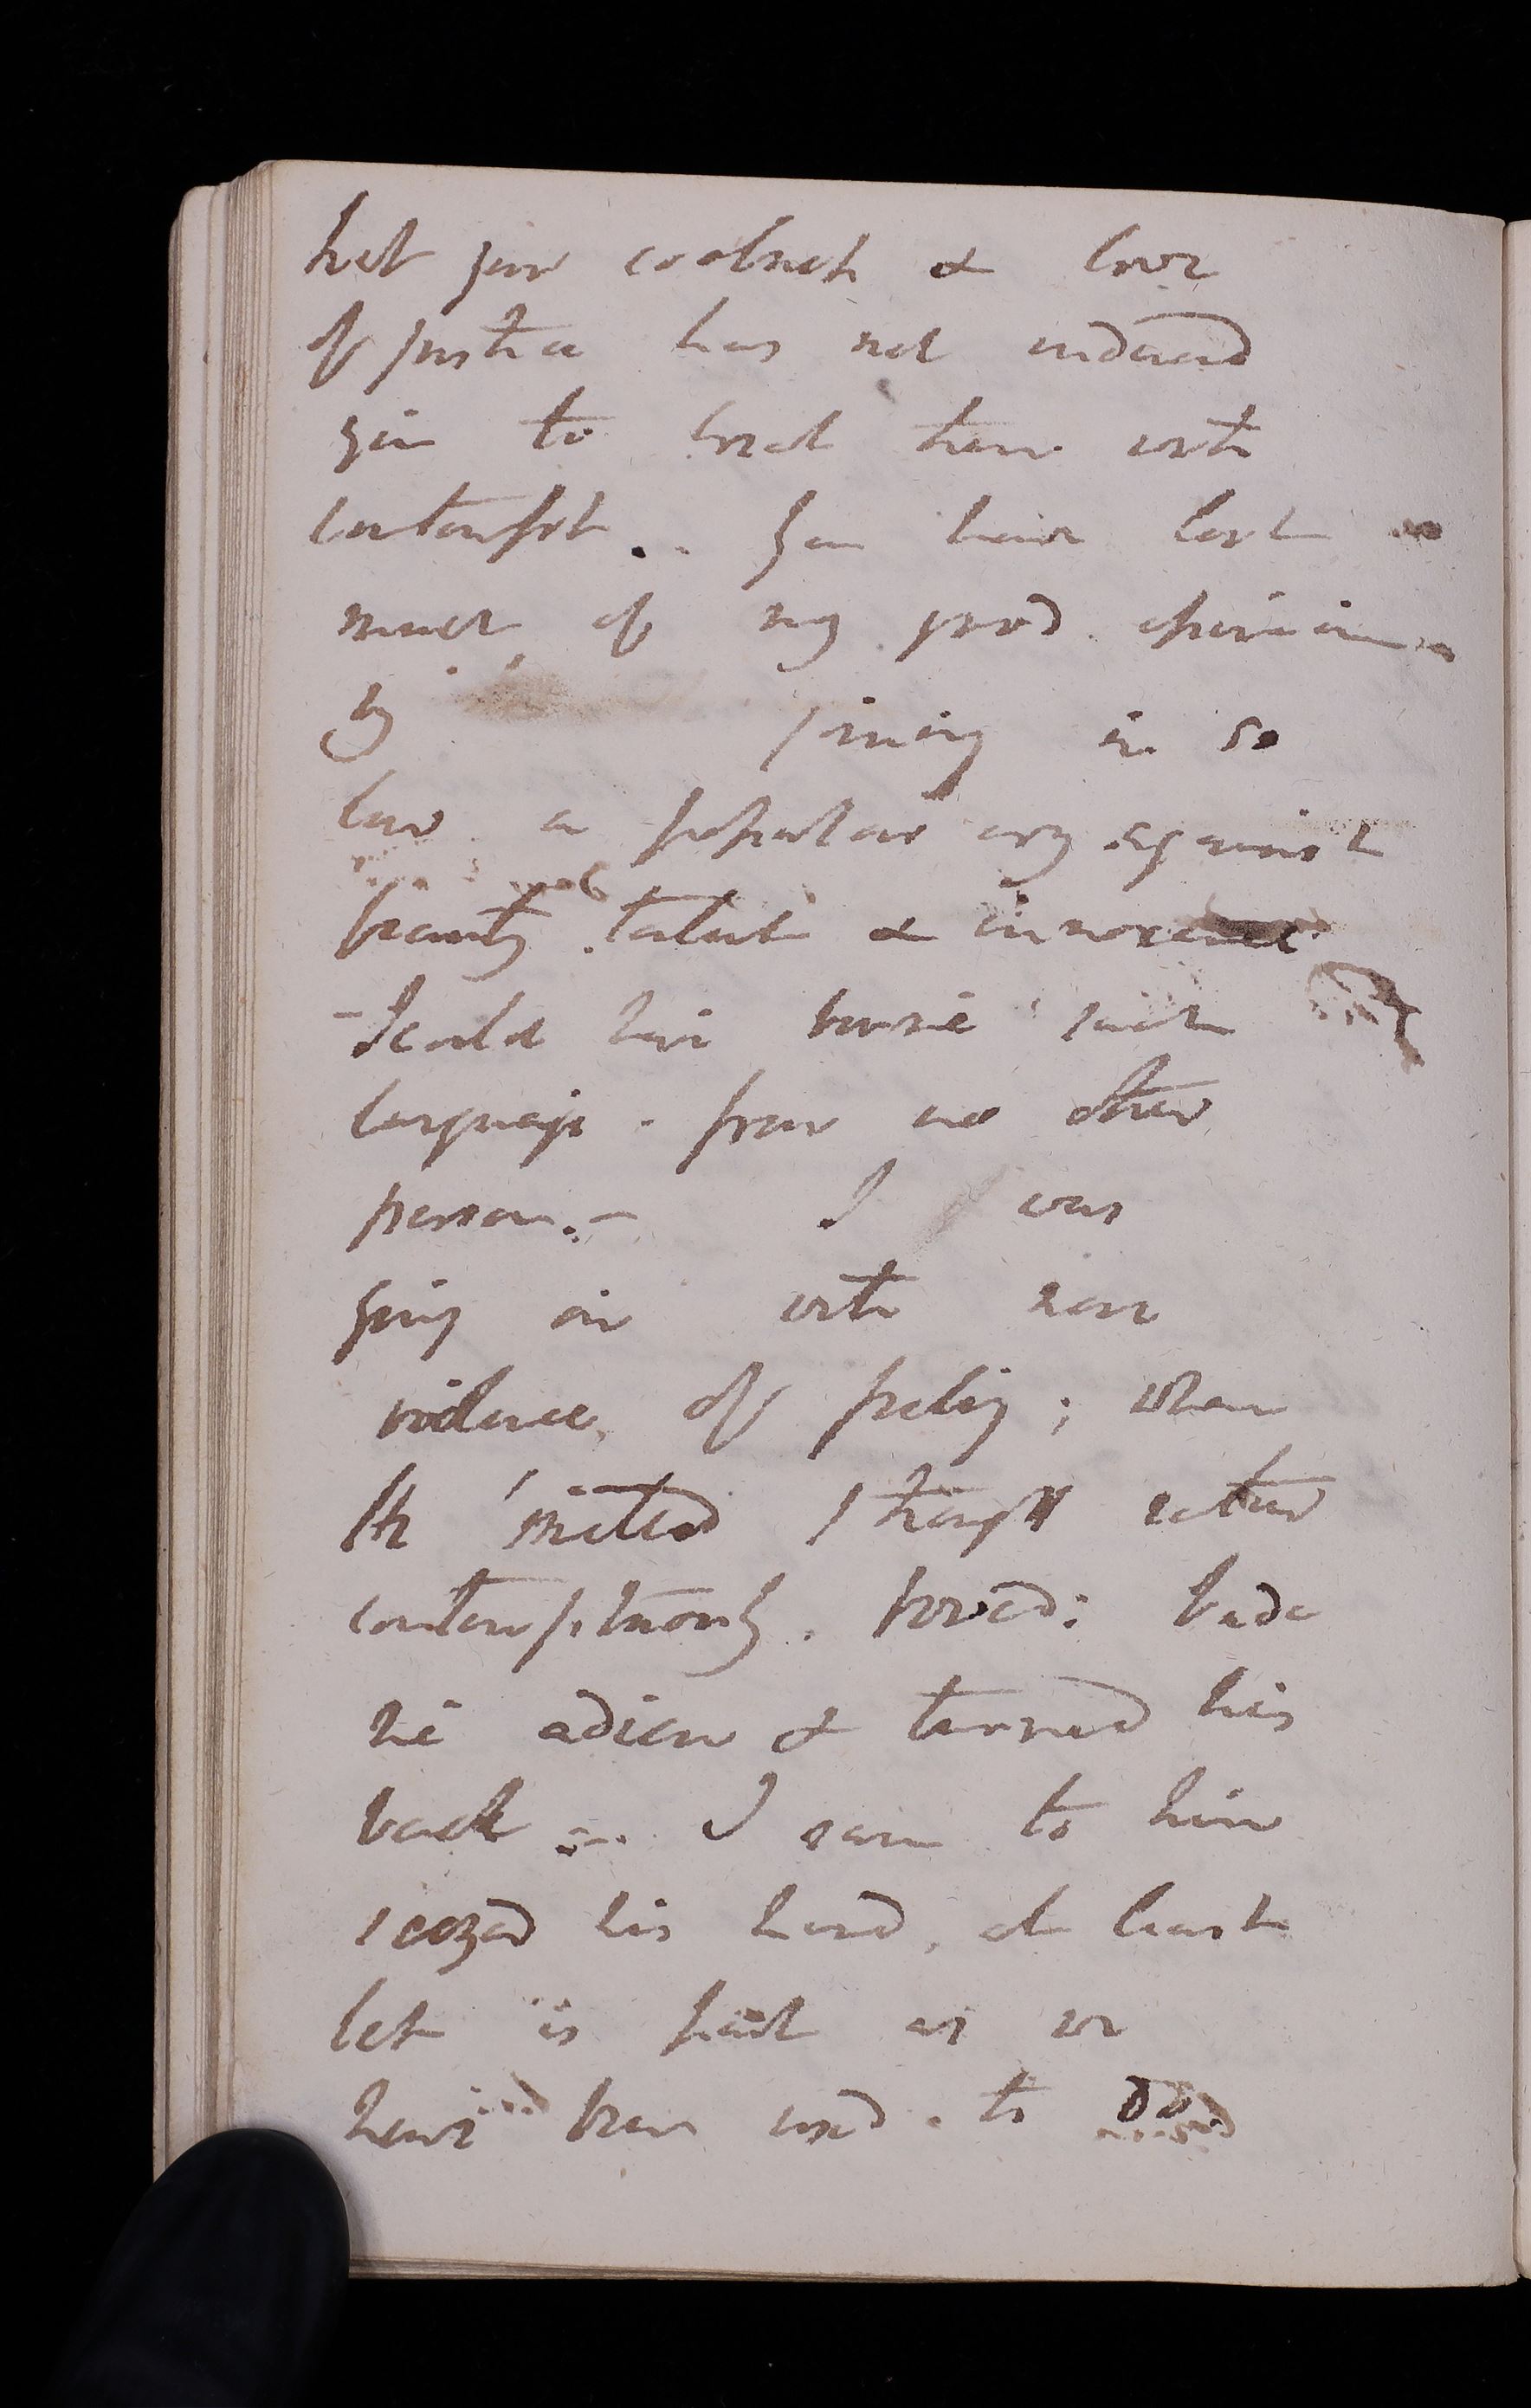 that your coolness & love
of justice has not induced
you to treat them with
contempt.. You have lost
much of my good opinion
by joining in so
low a popular cry against
beauty talent & innocence
- I could have borne such
language - from no other
person. - I was
going on with some
violence of feeling; when
He smiled I thought rather
contemptuously. bowed: bade
me adieu & turned his
back -- I ran to him
seezed his hand, at least
let us part as we
have been used to do